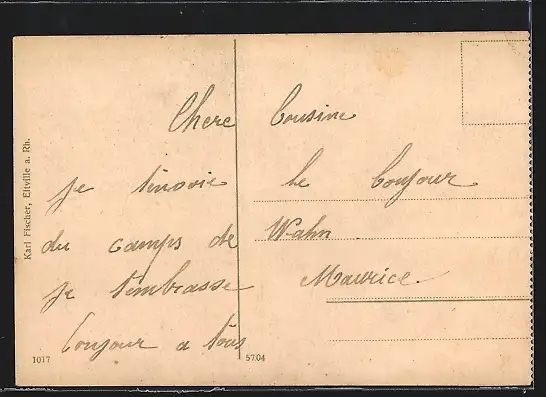 Chere Cousine
je t'invoie le bonjour
du camps de Wahn
je t'embrasse Maurice
bonjour a tous
Karl Fischer, Eltville a. Rh.
1017
5704